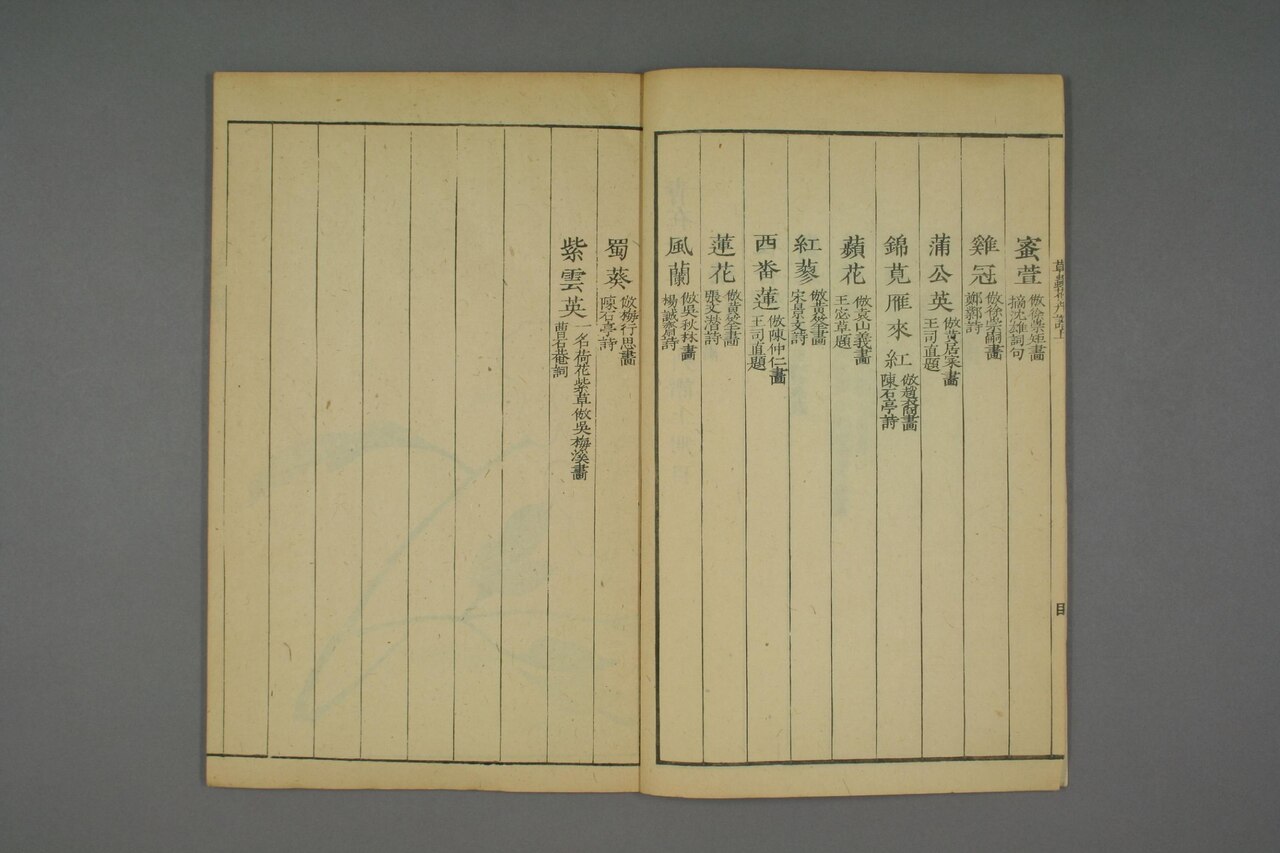 蜜萱
倣徐崇矩畫
摘沈雄詞句
雞冠
倣徐崇嗣畫
鄭鄭詩
蒲公英
倣黃居寀畫
王司直題
錦莧雁來紅
倣趙裔畫
陳石亭詩
蘋花
倣袁山義畫
王宓草題
紅蓼
倣黃筌畫
宋景文詩
西番蓮
倣陳仲仁畫
王司直題
蓮花
倣黃筌畫
張文潛詩
風蘭
倣吳秋林畫
楊誠齋詩
蜀葵
倣梅行思畫
陳石亭詩
紫雲英
一名荷花紫草倣吳梅溪畫
曹石菴詞
目